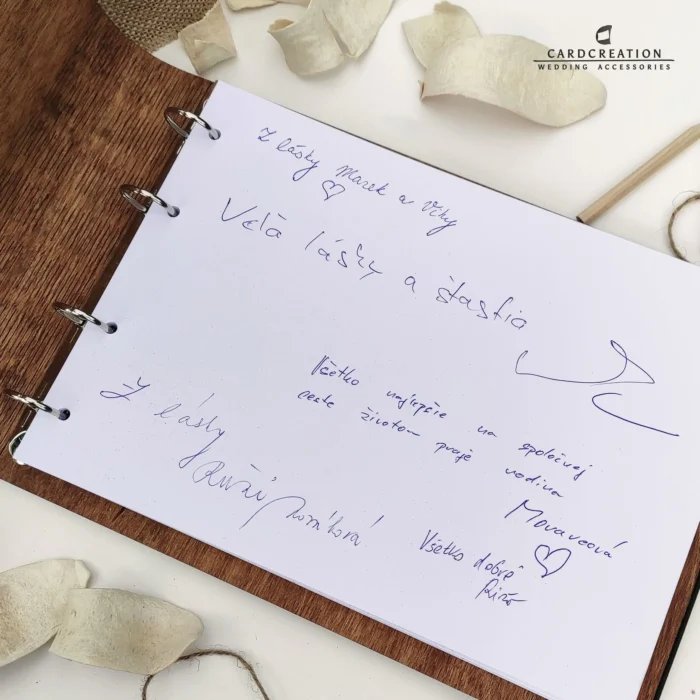 CARDCREATION
WEDDING ACCESSORIES
Z lásky Marek a Viky
Veľa lásky a šťastia
Všetko najlepšie na spoločnej
ceste životom praje rodina
Moravcová
Z lásky
Všetko dobré